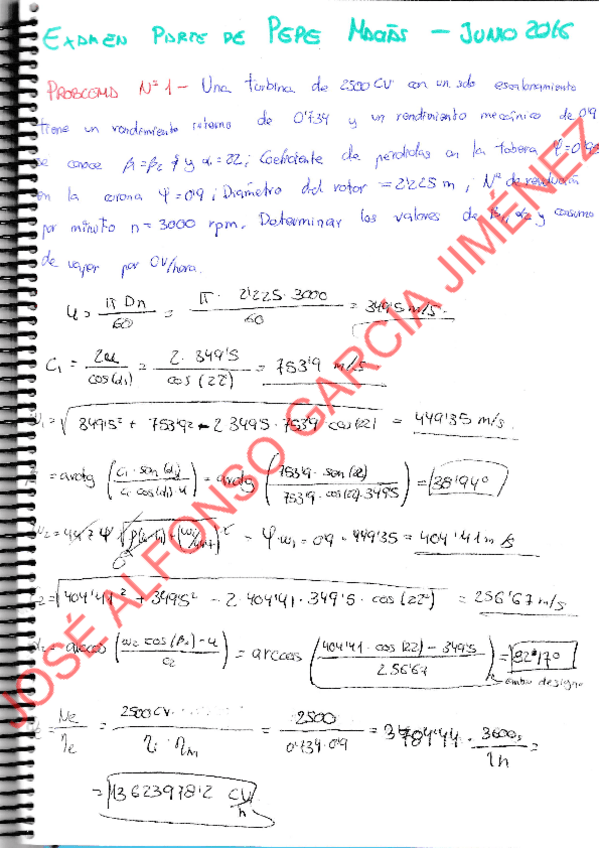 EXAMEN PARTE DE PEPE MACÍAS - JUNIO 2016
PROBLEMA Nº1- Una turbina de 2500CV con un solo escalonamiento
tiene un rendimiento interno de 0'734 y un rendimiento mecánico de 0'9
se conoce β1=β2 y α1=22; Coeficiente de pérdidas en la tobera φ=0'95
en la corona ψ=0'9; Diámetro del rotor = 2'225 m; Nº de
por minuto n=3000 rpm. Determinar los valores de β1, α2 y consumo
de vapor por CV/hora.
u = πDn/60 = π · 2'225 · 3000/60 = 349'5 m/s.
C1 = 2u/cos(α1) = 2 · 349'5/cos(22) = 753'9 m/s
w1 = √(349'5² + 753'9² - 2 349'5 · 753'9 · cos(22)) = 449'35 m/s.
= arctg (C1 · sen(α1)/C1 cos(α1) - u) = arctg (753'9 · sen(22)/753'9 · cos(22) - 349'5) = 38'94º
ψ · w1 = 0'9 · 449'35 = 404'41 m/s
C2 = √(404'41² + 349'5² - 2 · 404'41 · 349'5 · cos(22º)) = 256'67 m/s
α2 = arccos (w2 cos(β2) - u/c2) = arccos (404'41 · cos(22) - 349'5/256'67) = 82'17º
cambio de signo
= Ne/ηe = 2500CV/ηi · ηm = 2500/0'734 · 0'9 = 3784'44 · 3600s/1h =
= 13623978'2 CV/h
JOSÉ ALFONSO GARCÍA JIMÉNEZ